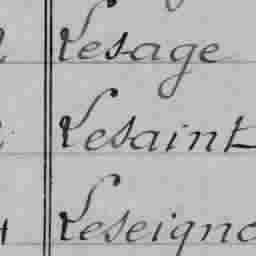 Lesage
Lesaint
Leseigno